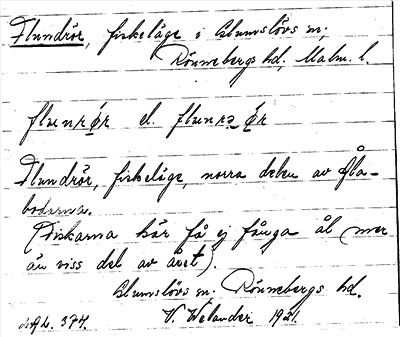 Flundrör, fiskeläge i Glumslövs sn;
Rönnebergs hd, Malm. l.
flunrør el. flunrə ǿr
Flundrör, fiskeläge, norra delen av Åla-
bodarna.
(Fiskarna här få ej fånga ål mer
än viss del av året).
Glumslövs sn. Rönnebergs hd.
V. Welander 1921.